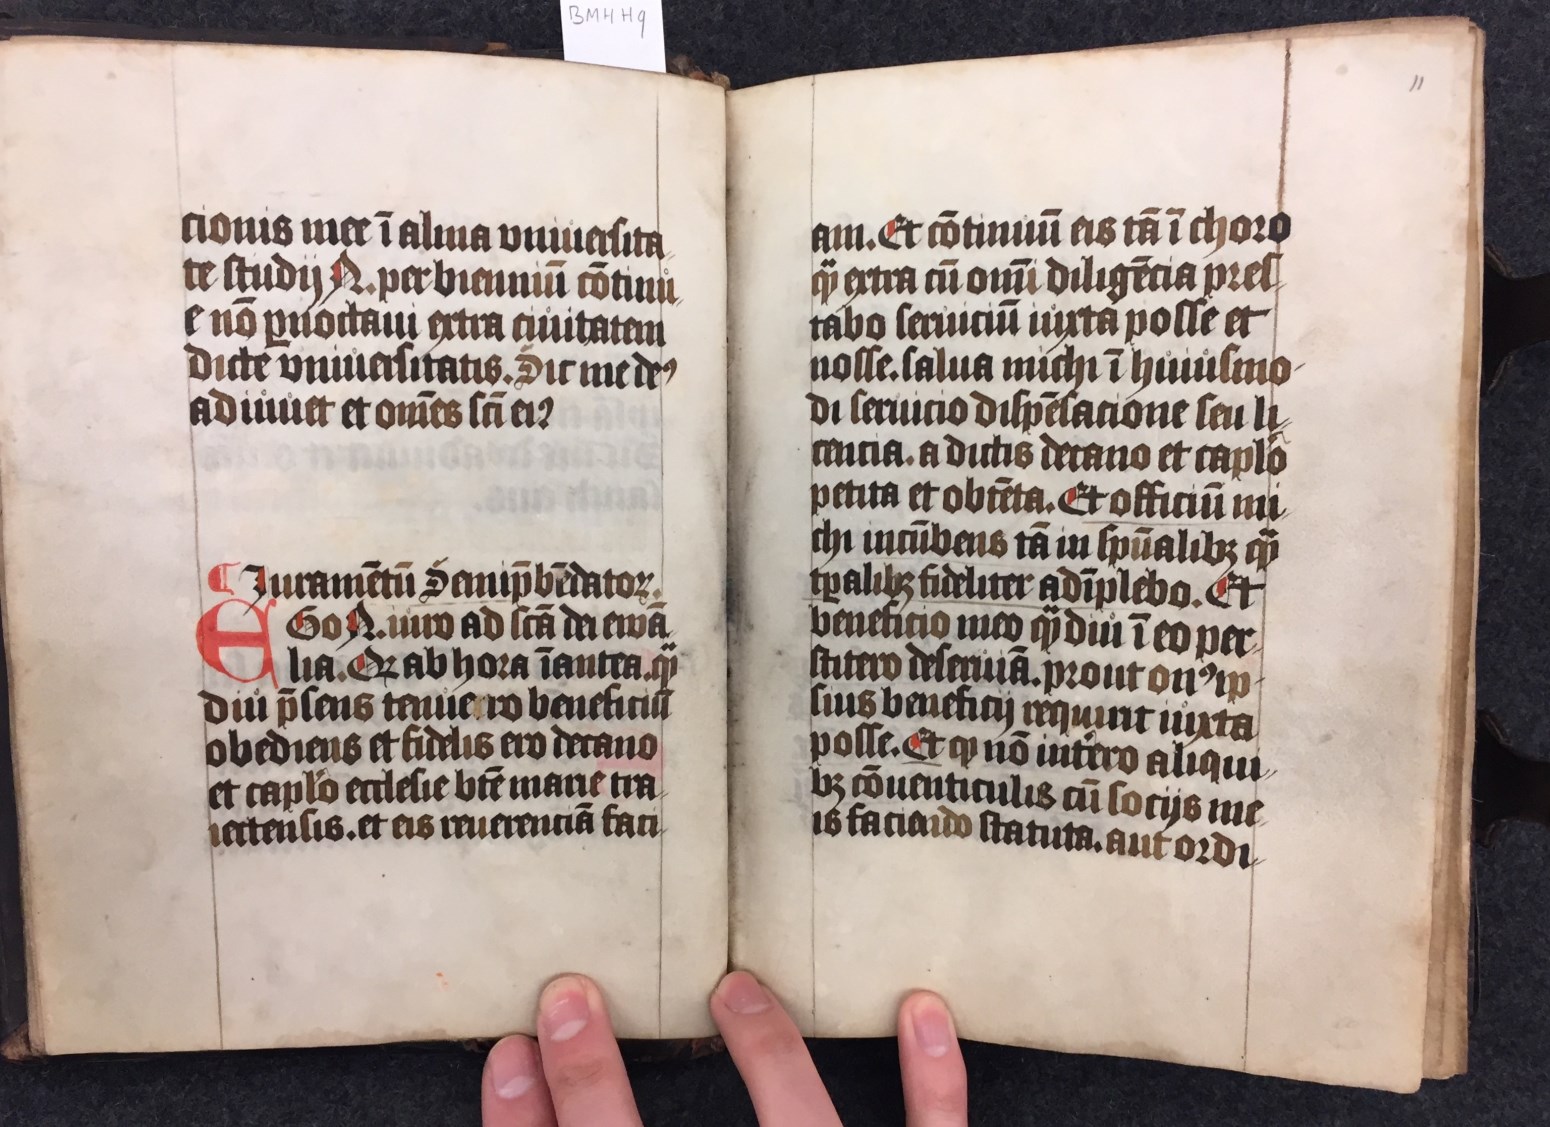 BMH H9
cionis mee ī alma vniuersita
te studij N. per bienniū cōtinu
e nō ꝑnoctaui extra ciuitatem
dicte vniuersitatis. Sic me deꝰ
adiuuet et om̄es sc̄i eiꝰ
¶ Iuramētū Semip̄bēdatoꝝ.
EGo N. iuro ad sc̄a dei ewā
lia. Qꝫ ab hora īantea. qᷓ
diu p̄sens tenuero beneficiū
obediens et fidelis ero decano
et caplo ecclesie btē marie tra
iectensis. et eis reuerenciā faci
11
am. Et cōtinuū eis tā ī choro
qᷓ extra cū om̄i diligēcia pres
tabo seruiciū iuxta posse et
nosse. salua michi ī huiusmo
di seruicio dispēsacione seu li
cencia. a dictis decano et caplō
petita et obtēta. Et officiū mi
chi incūbens tā in sp̄ualibꝫ qᷓ
tꝑalibꝫ fideliter adīplebo. Et
beneficio meo qᷓdiu ī eo per
stitero deseruiā. prout onꝰ ip
sius beneficij requirit iuxta
posse. Et ꝙ nō intēro aliqui
bꝫ cōuenticulis cū socijs me
is faciendo statuta. aut ordi